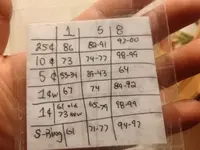 1 5 8
25¢ 86 82-91 92-00
10¢ 73 74-77 98-99
5¢ 84-43 64
1¢w 67 74 89-92
1¢ 61 old 73 new 98-99
S-Ring 61 71-77 94-97